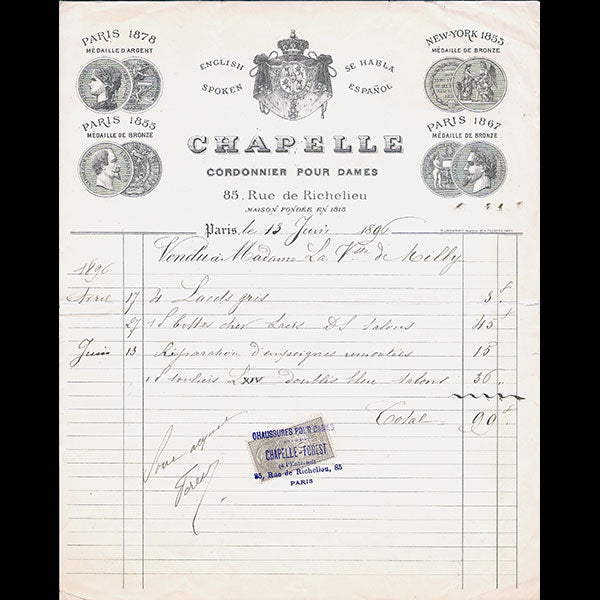 PARIS 1878
MÉDAILLE D'ARGENT
ENGLISH SPOKEN
SE HABLA ESPAÑOL
NEW-YORK 1853
MÉDAILLE DE BRONZE
PARIS 1855
MÉDAILLE DE BRONZE
PARIS 1867
MÉDAILLE DE BRONZE
CHAPELLE
CORDONNIER POUR DAMES
85, Rue de Richelieu
MAISON FONDÉE EN 1815
Paris, le 13 Juin 1896
Vendu à Madame La Vtesse de Milly
1896
Avril 17 4 Lacets gris 3 f "
27 1 P bottes chev Lacés D S talons 45 f
Juin 13 Réparation d'empeignes remontées 15
1 P souliers L XIV doublés bleu talons 36 "
Total 99 f
Pour acquit
Forest
CHAUSSURES POUR DAMES
CHAPELLE-FOREST
(à l'Entresol)
85, Rue de Richelieu, 85
PARIS